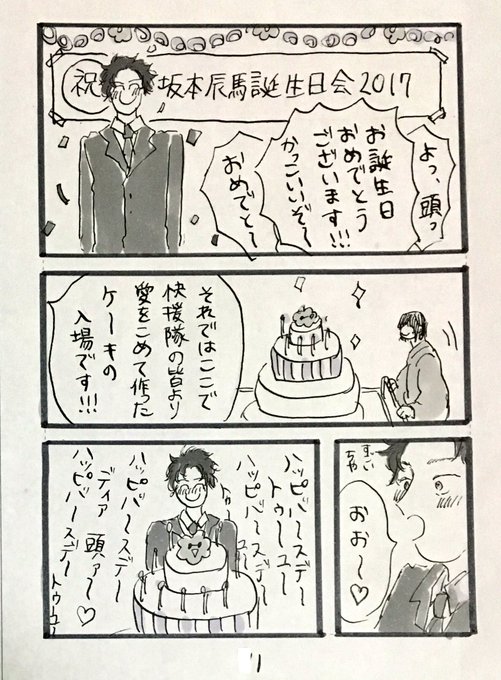 祝 坂本辰馬誕生日会2017
よっ、頭っ
お誕生日
おめでとう
ございます!!!
かっこいいぞ〜
おめでと〜
それではここで
快援隊の皆より
愛をこめて作った
ケーキの
入場です!!!
おお〜♡
ハッピバースデー
トゥーユー
ハッピバースデー
トゥーユー
ハッピバースデー
ディア 頭ァ〜♡
ハッピバースデー トゥユー
11